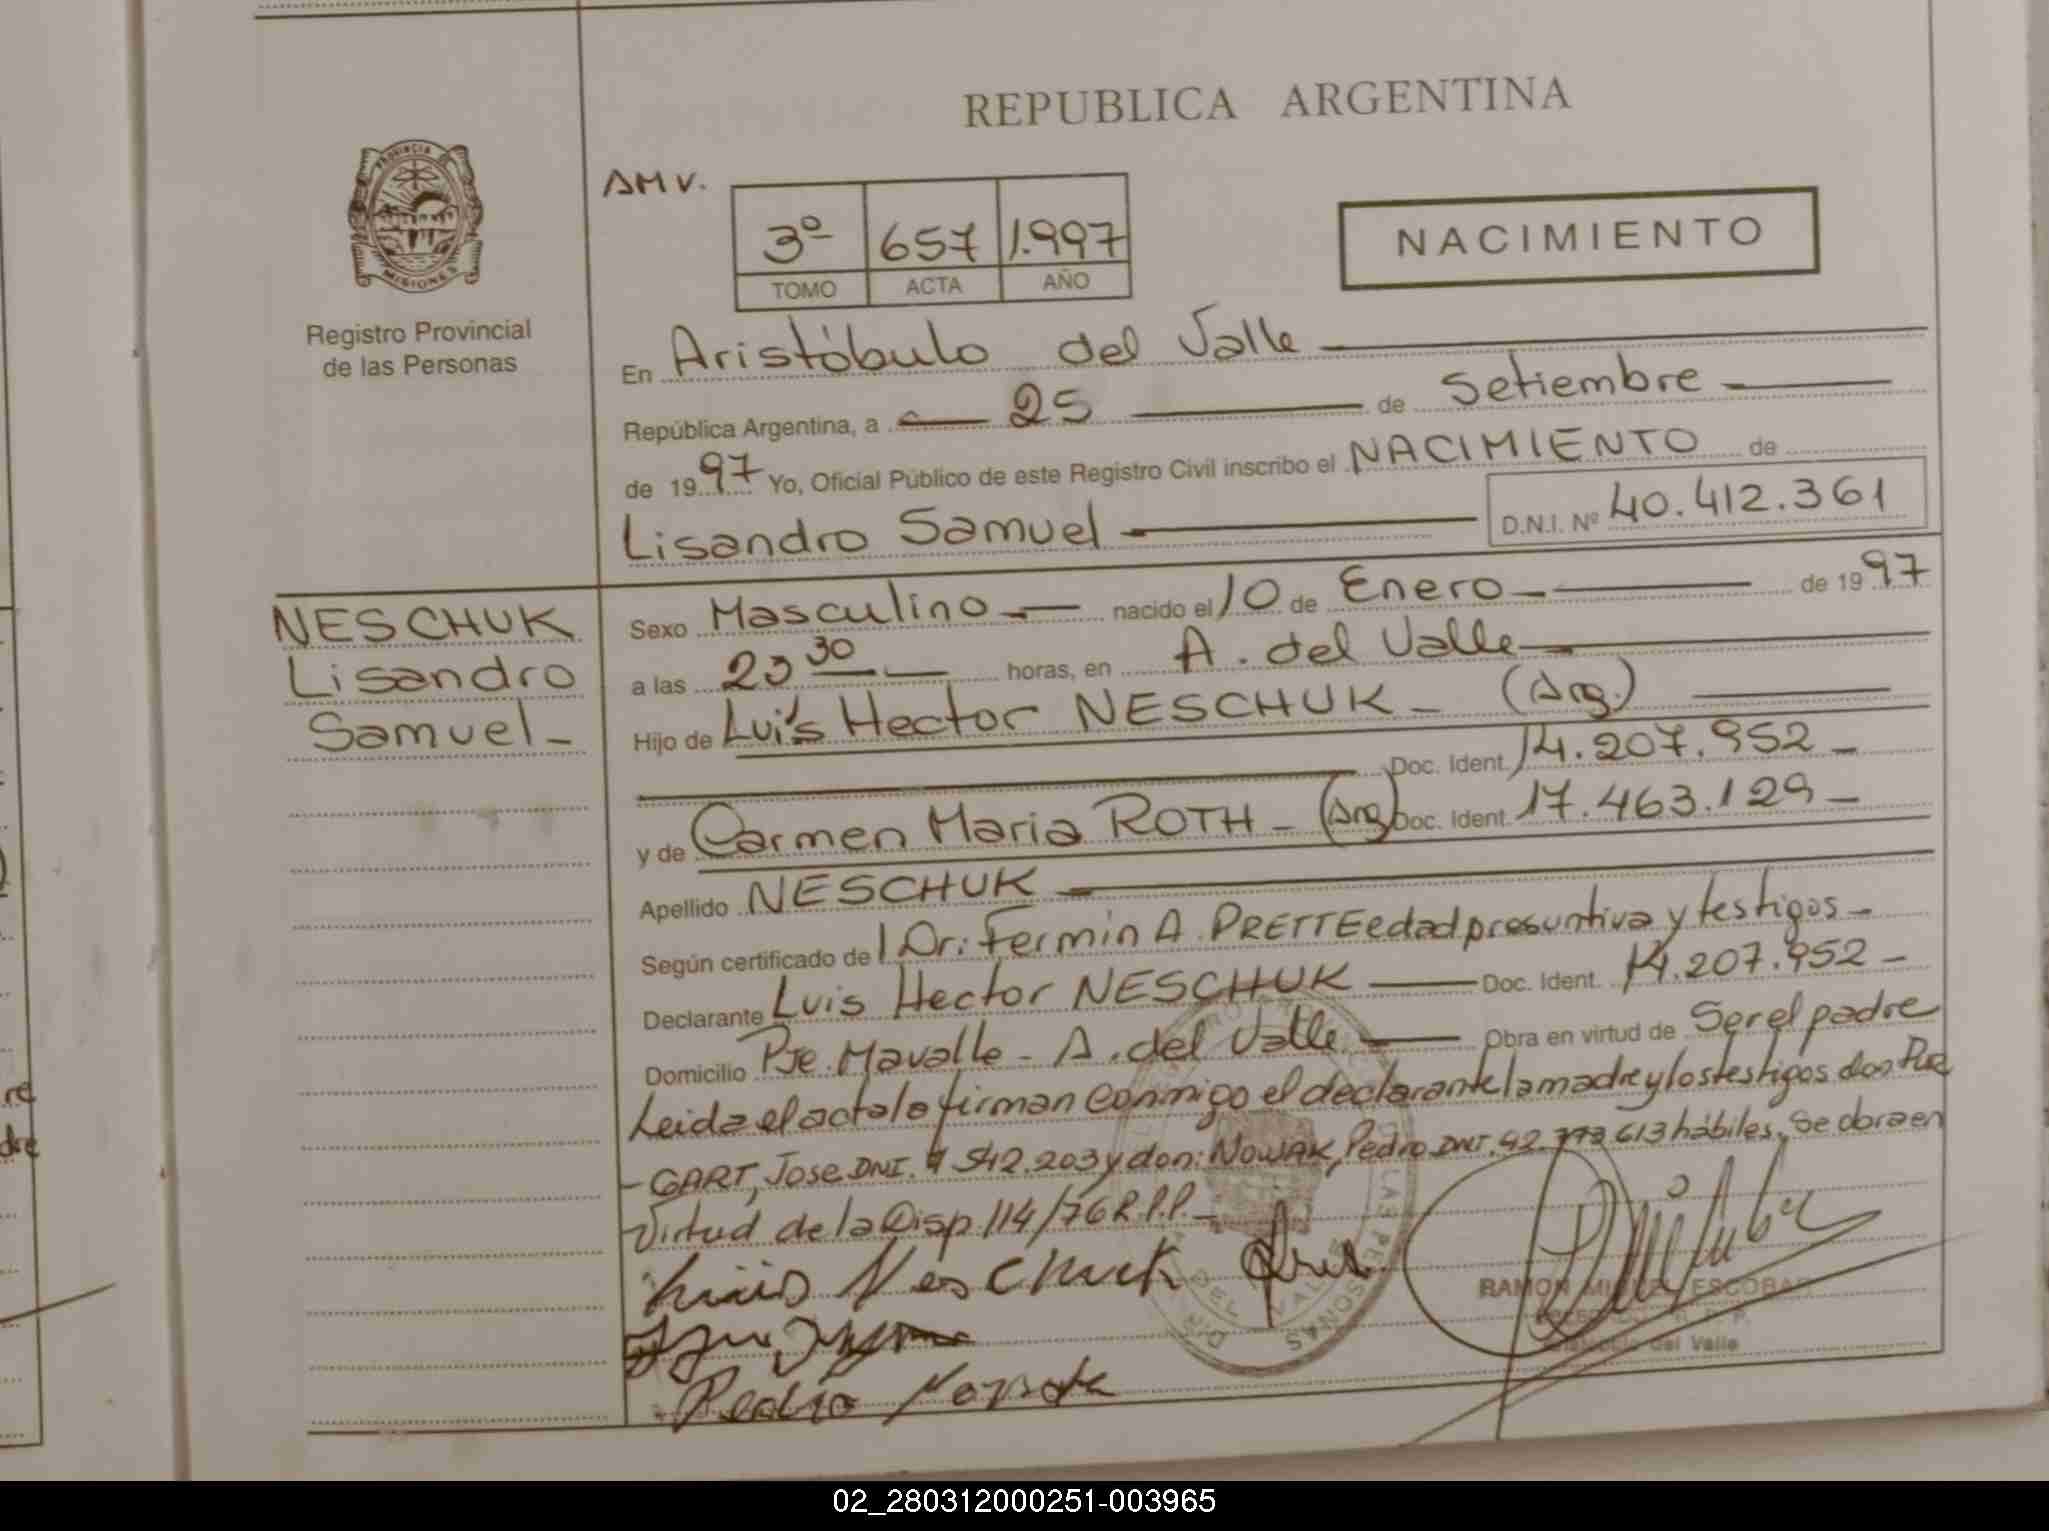 REPUBLICA ARGENTINA
PROVINCIA DE MISIONES
Registro Provincial
de las Personas
AMV.
3º 657 1.997
TOMO ACTA AÑO
NACIMIENTO
En Aristóbulo del Valle
República Argentina, a 25 de Setiembre
de 1997 Yo, Oficial Público de este Registro Civil inscribo el NACIMIENTO de
Lisandro Samuel D.N.I. Nº 40.412.361
NESCHUK
Lisandro
Samuel
Sexo Masculino nacido el 10 de Enero de 1997
a las 23 30 horas, en A. del Valle
Hijo de Luis Hector NESCHUK - (Arg.)
Doc. Ident. 14.207.952
y de Carmen Maria ROTH - (Arg) Doc. Ident. 17.463.129
Apellido NESCHUK
Según certificado de l Dr: Fermin A. PRETTE edad presuntiva y testigos
Declarante Luis Hector NESCHUK Doc. Ident. 14.207.952
Domicilio Pje. Mavalle - A. del Valle Obra en virtud de Ser el padre
Leida el acta la firman conmigo el declarante la madre y los testigos don
GART, Jose DNI. 542.203 y don: NOWAK, Pedro DNI. 92. 613 hábiles, Se obra en
Virtud de la Disp. 114/76 R.P.P.
Luis Neschuk
Pedro
RAMON MIGUEL ESCOBAR
del Valle
02_280312000251-003965